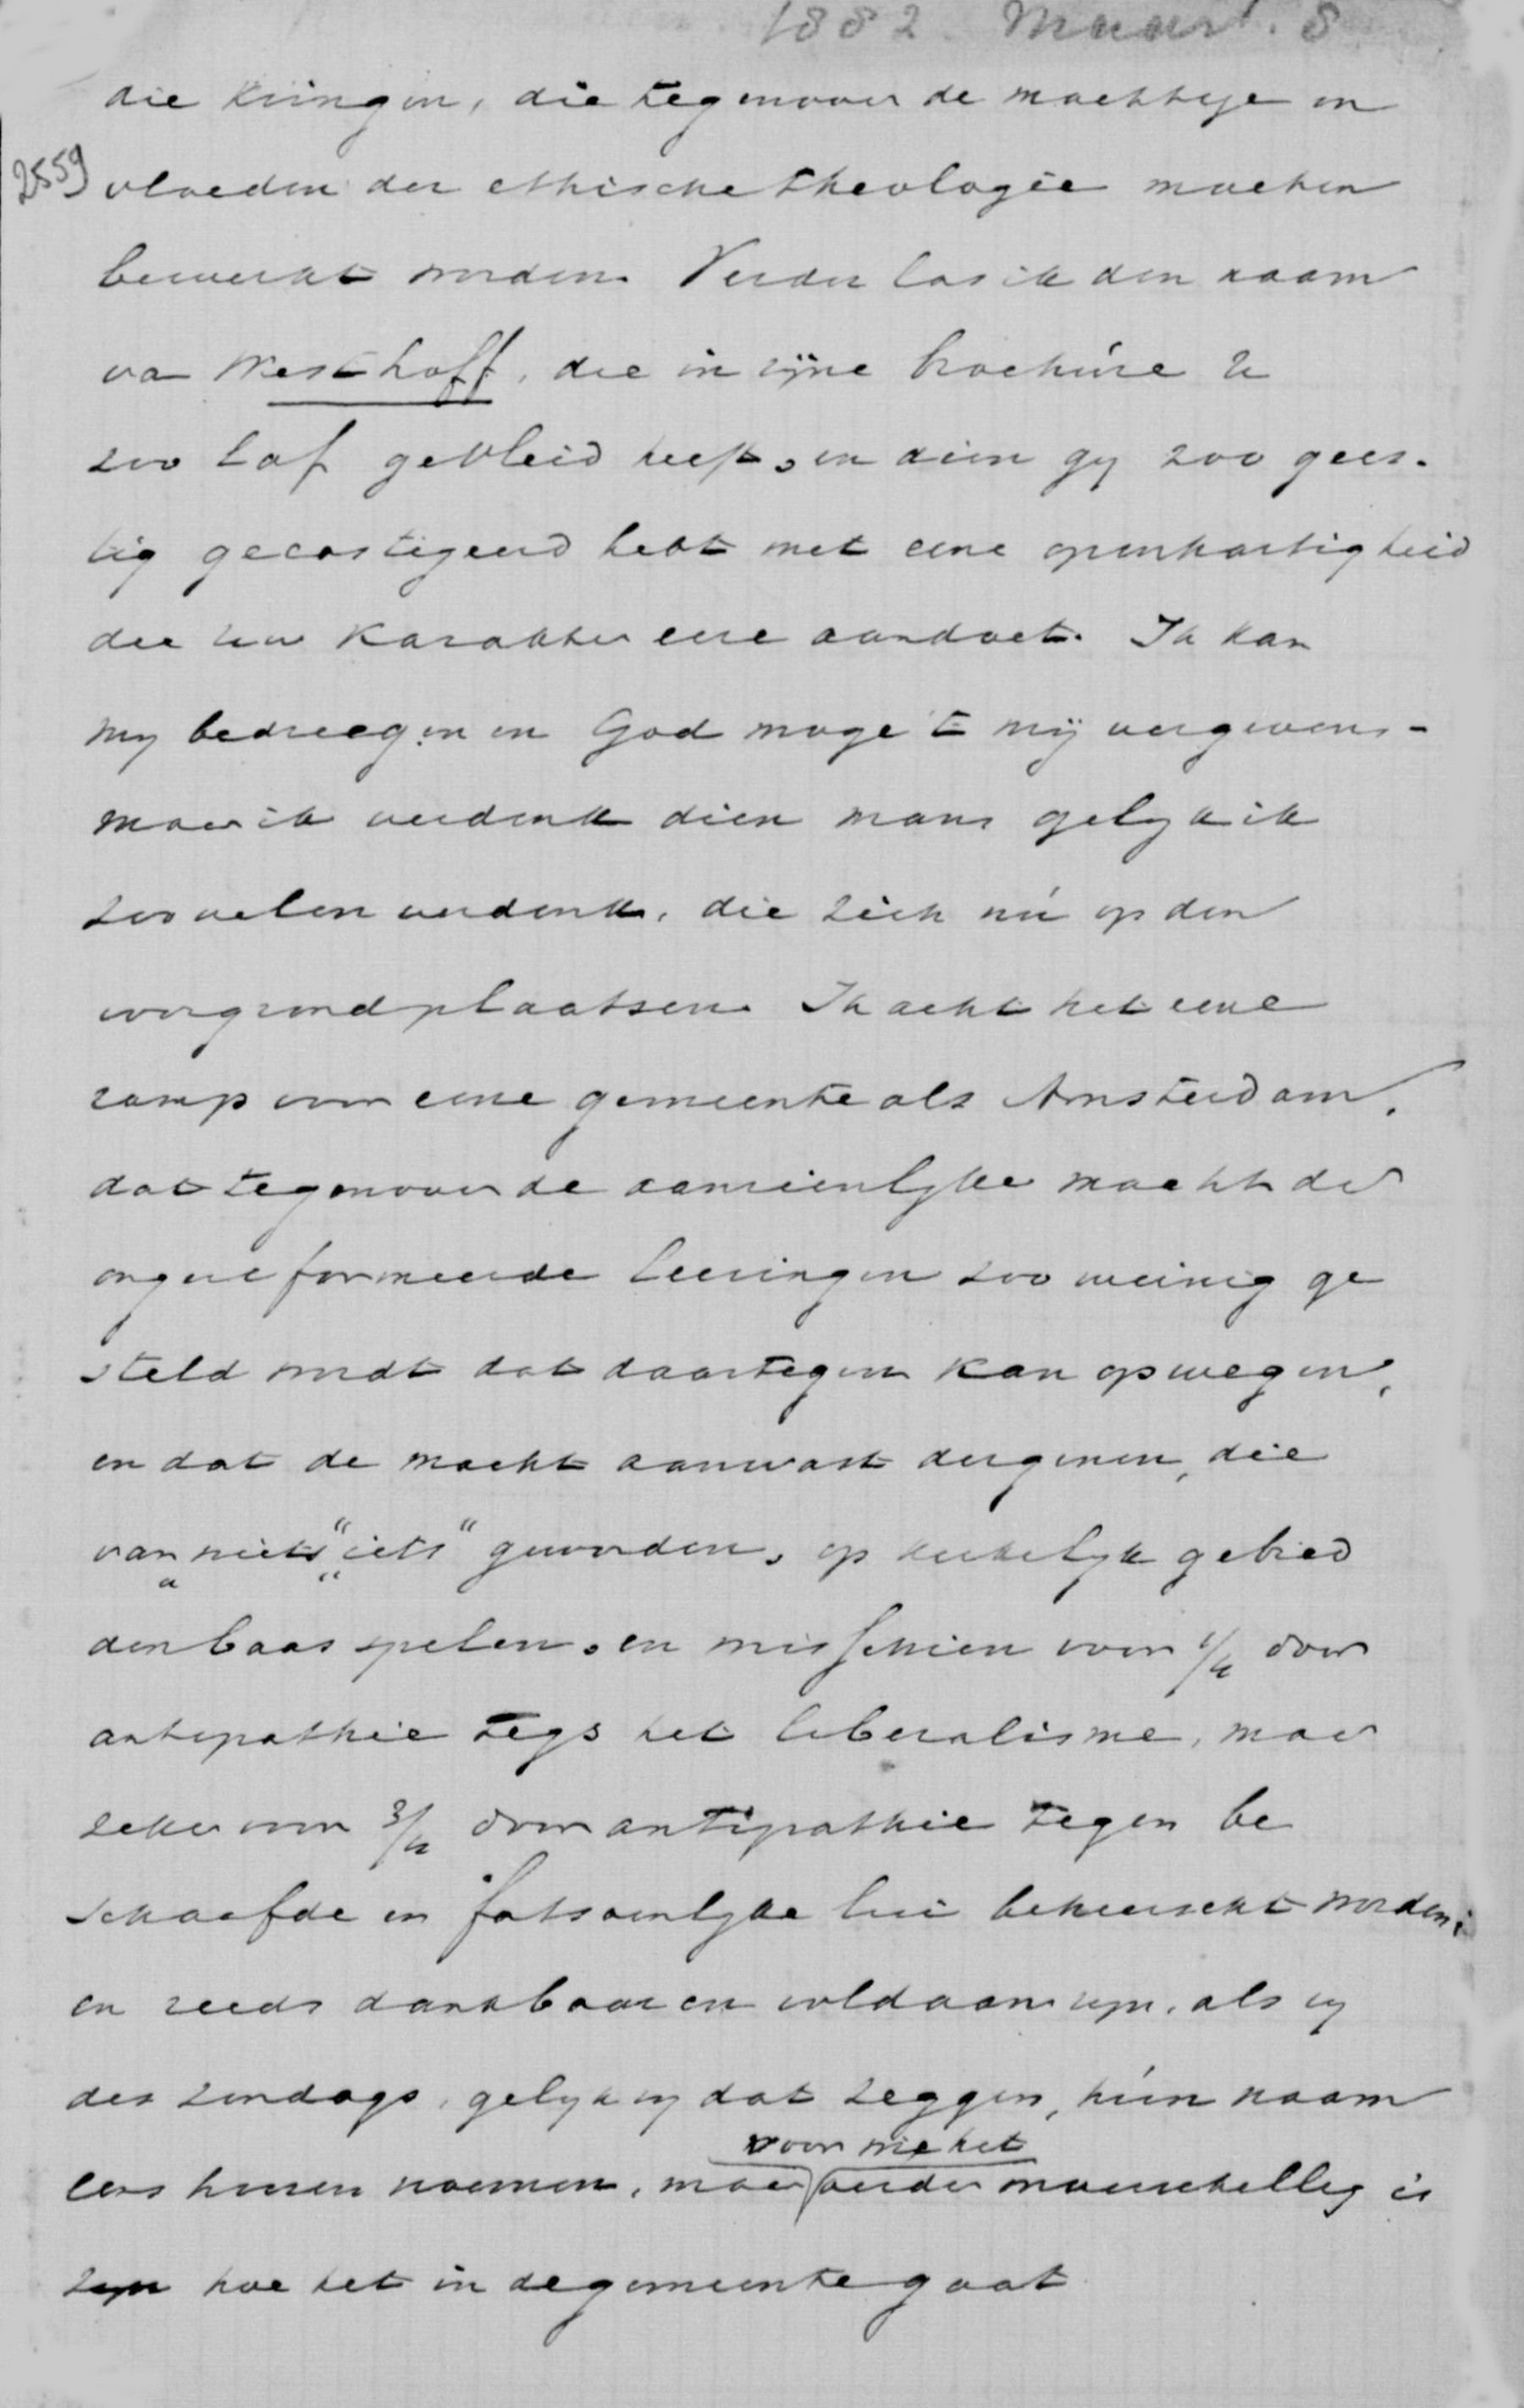 1882 Maart. 8
die kringen, die tegenover de machtige in
2559
vloeden der ethische theologie moeten
bewerkt worden. Verder las ik den naam
van Westhoff, die in zijne brochúre U
zoo laf gevleid heeft, en dien gy zoo gees-
tig gecastigeerd hebt met eene openhartigheid
die uw karakter eere aandoet. Ik kan
my bedriegen en God moge 't mij vergeven -
maar ik verdenk dien man gelyk ik
zoovelen verdenk, die zich nú op den
voorgrond plaatsen. Ik acht het eene
ramp voor eene gemeente als Amsterdam,
dat tegenover de aanzienlyke macht der
ongereformeerde leeringen zoo weinig ge
steld wordt dat daartegen kan opwegen,
en dat de macht aanwast dergenen, die
van „niets" „iets" geworden, op kerkelyk gebied
den baas spelen, en misschien voor 1/4 door
antipathie tegs het liberalisme, maar
zeker voor 3/4 door antipathie tegen be
schaafde en fatsoenlyke lui beheerscht worden;
en reeds dankbaar en voldaan zyn, als zy
des zondags, gelyk zy dat zeggen, hún naam
voor wie het
eens hooren noemen, maar verder onverschillig is
zyn hoe het in de gemeente gaat